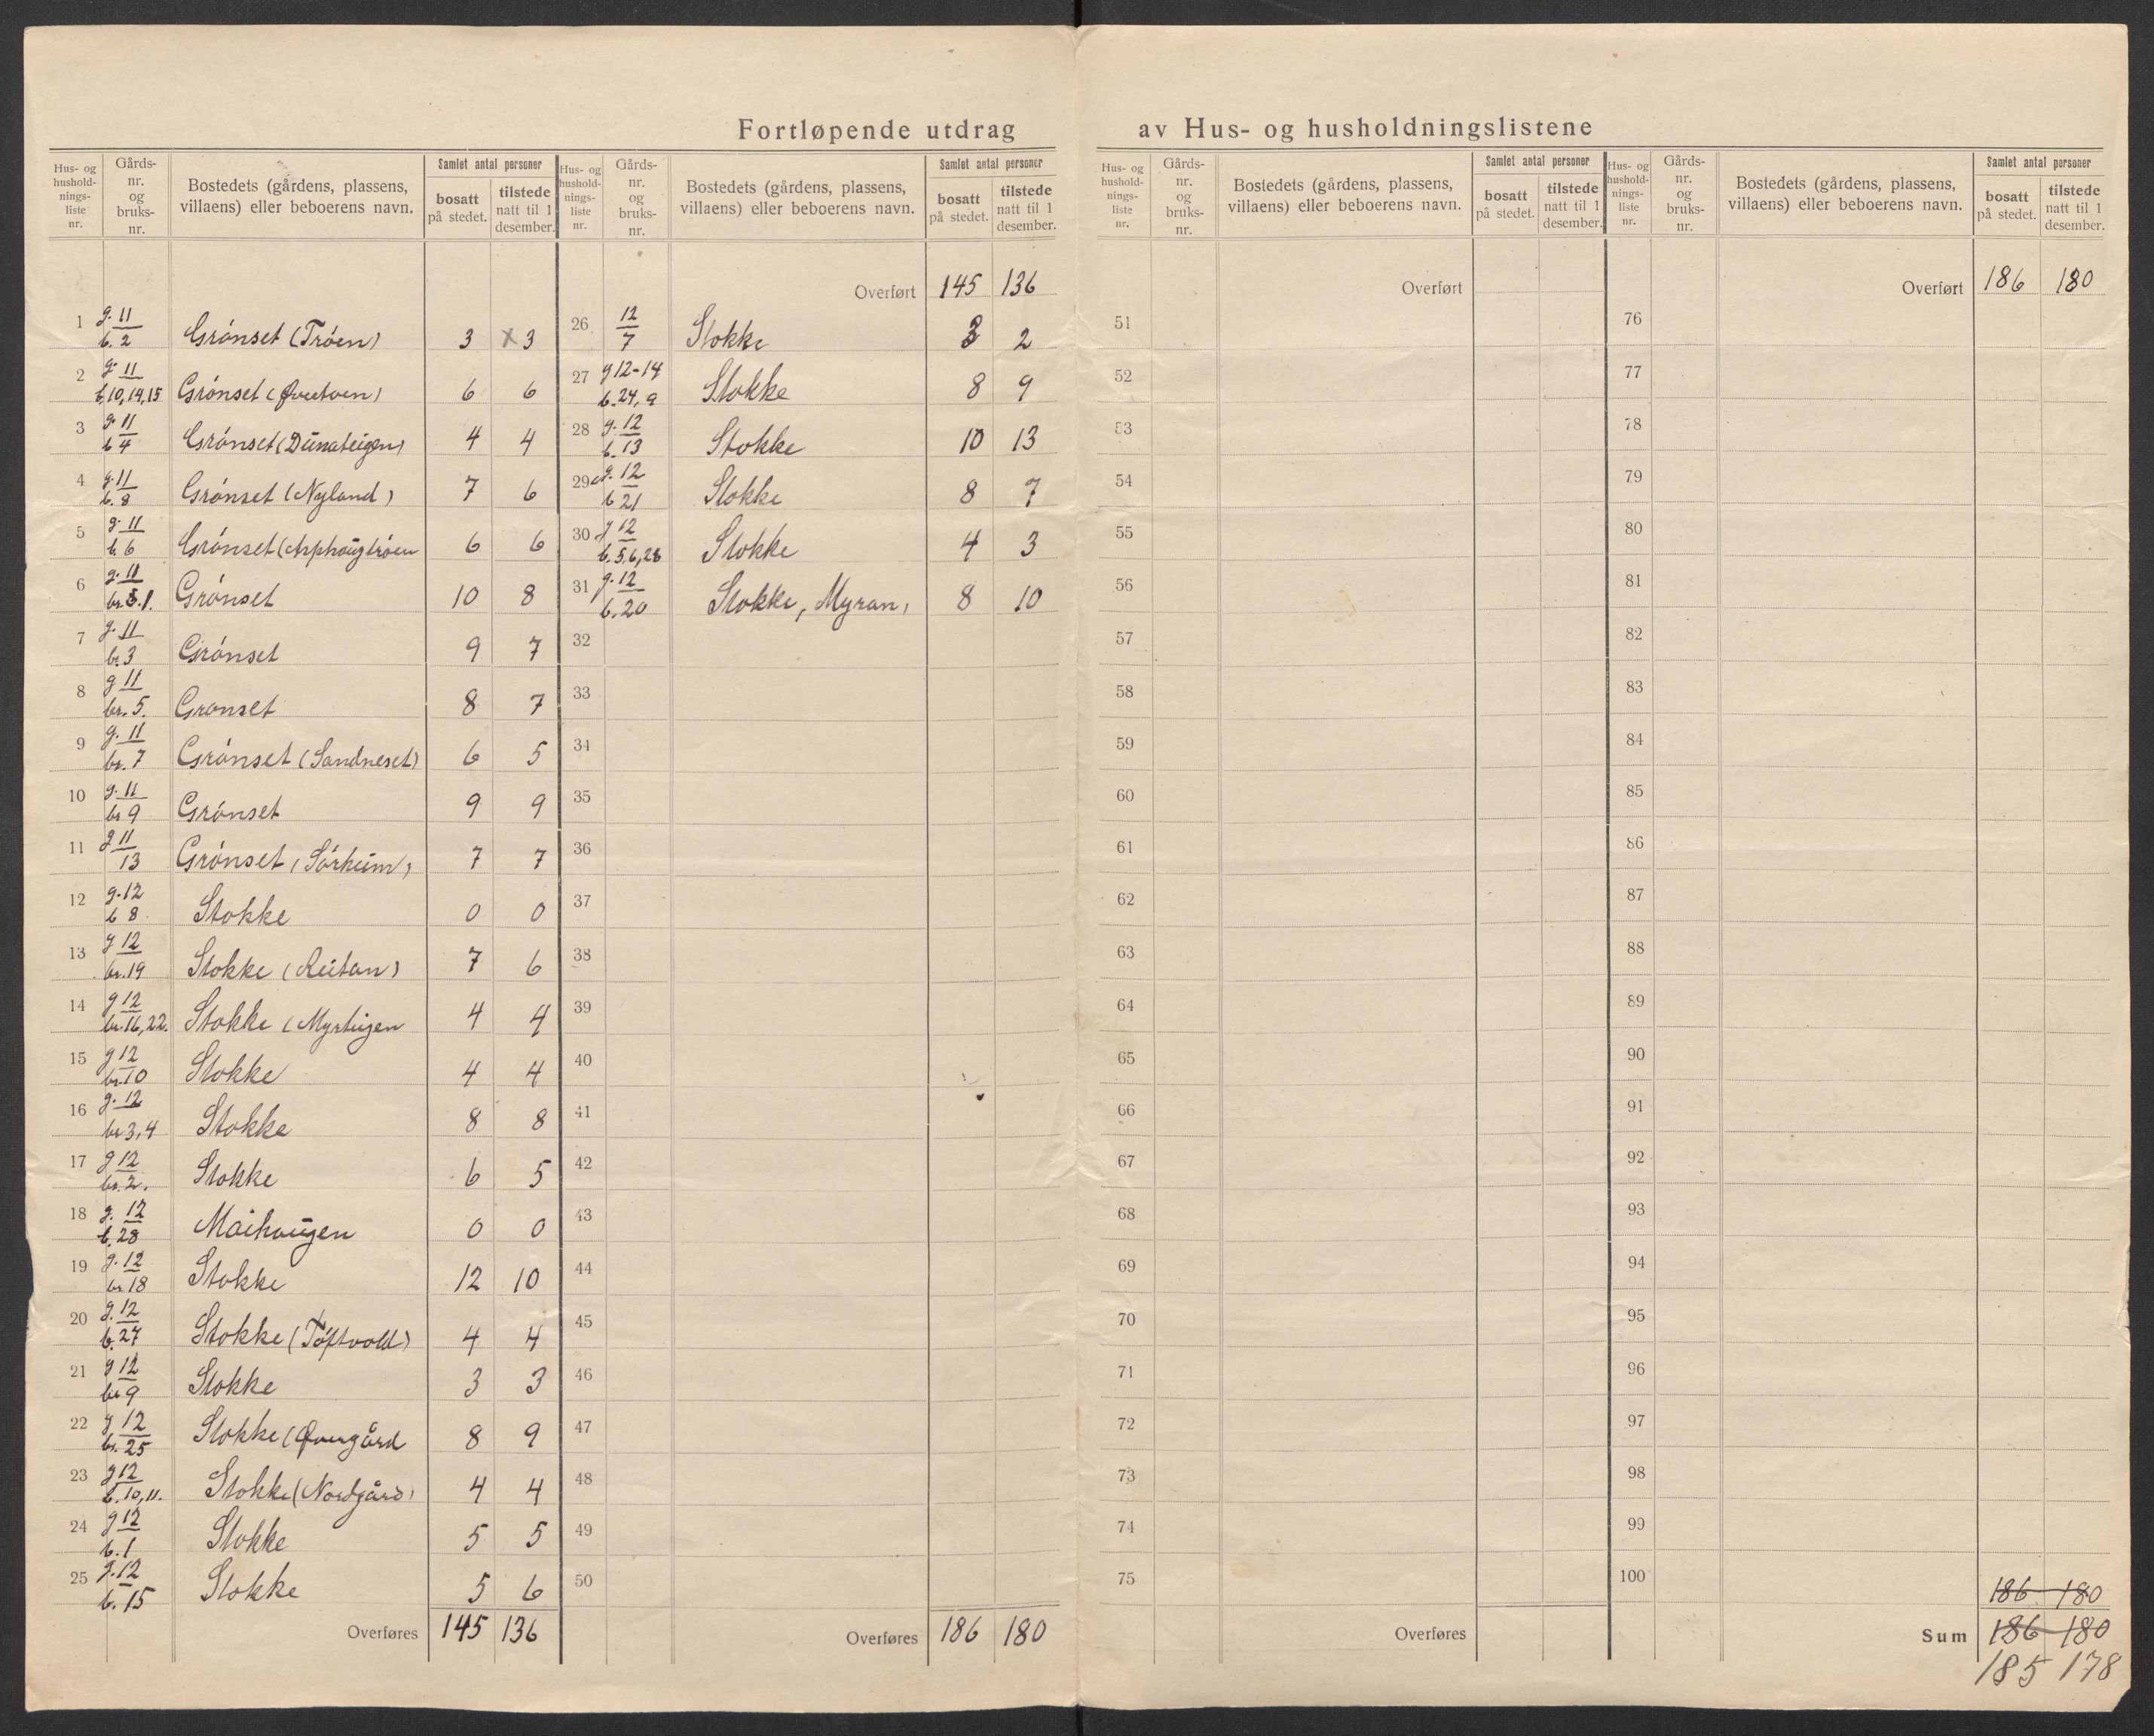 Fortløpende utdrag av Hus- og husholdningslistene
Hus- og hushold-nings-liste nr. | Gårds-nr. og bruks-nr. | Bostedets (gårdens, plassens, villaens) eller beboerens navn. | Samlet antal personer | bosatt på stedet. | tilstede natt til 1 desember.
1 g. 11 b. 2 Grónset (Tróen) 3 x 3
2 g. 11 b. 10, 14, 15 Grónset 6 6
3 g. 11 b. 4 Grónset 4 4
4 g. 11 b. 8 Grónset (Nyland) 7 6
5 g. 11 b. 6 Grónset (Asphoŭgtróen 6 6
6 g. 11 br. 1. Grónset 10 8
7 g. 11 br. 3 Grónset 9 7
8 g 11 br. 5. Gronset 8 7
9 g. 11 br. 7 Grónset (Sandneset) 6 5
10 g. 11 br 9 Grónset 9 9
11 g 11 13 Grónset (Sórheim) 7 7
12 g. 12 b 8 Stokke 0 0
13 g 12 br. 19 Stokke (Reitan) 7 6
14 g 12 br. 16, 22. Stokke (Myrteigen 4 4
15 g 12 br. 10 Stokke 4 4
16 g. 12 br 3, 4 Stokke 8 8
17 g 12 br. 2. Stokke 6 5
18 g. 12 b. 28 Maihaŭgen 0 0
19 g. 12 br 18 Stokke 12 10
20 g. 12 b. 27 Stokke (Tóftvold) 4 4
21 g 12 br 9 Stokke 3 3
22 g 12 br. 25 Stokke (Øvergård 8 9
23 g 12 b. 10, 11. Stokke (Nordgård) 4 4
24 g 12 b. 1 Stokke 5 5
25 g. 12 b. 15 Stokke 5 6
Overføres 145 136
Hus- og hushold-nings-liste nr. | Gårds-nr. og bruks-nr. | Bostedets (gårdens, plassens, villaens) eller beboerens navn. | Samlet antal personer | bosatt på stedet. | tilstede natt til 1 desember.
Overført 145 136
26 12 7 Stokke 3 2
27 g 12-14 b. 24, 9 Stokke 8 9
28 g. 12 b. 13 Stokke 10 13
29 g. 12 b 21 Stokke 8 7
30 g 12 b. 5, 6, 28 Stokke 4 3
31 g. 12 b. 20 Stokke, Myran, 8 10
32
33
34
35
36
37
38
39
40
41
42
43
44
45
46
47
48
49
50
Overføres 186 180
Hus- og hushold-nings-liste nr. | Gårds-nr. og bruks-nr. | Bostedets (gårdens, plassens, villaens) eller beboerens navn. | Samlet antal personer | bosatt på stedet. | tilstede natt til 1 desember.
Overført
51
52
53
54
55
56
57
58
59
60
61
62
63
64
65
66
67
68
69
70
71
72
73
74
75
Overføres
Hus- og hushold-nings-liste nr. | Gårds-nr. og bruks-nr. | Bostedets (gårdens, plassens, villaens) eller beboerens navn. | Samlet antal personer | bosatt på stedet. | tilstede natt til 1 desember.
Overført 186 180
76
77
78
79
80
81
82
83
84
85
86
87
88
89
90
91
92
93
94
95
96
97
98
99
100
186 180
Sum 186 180
185 178